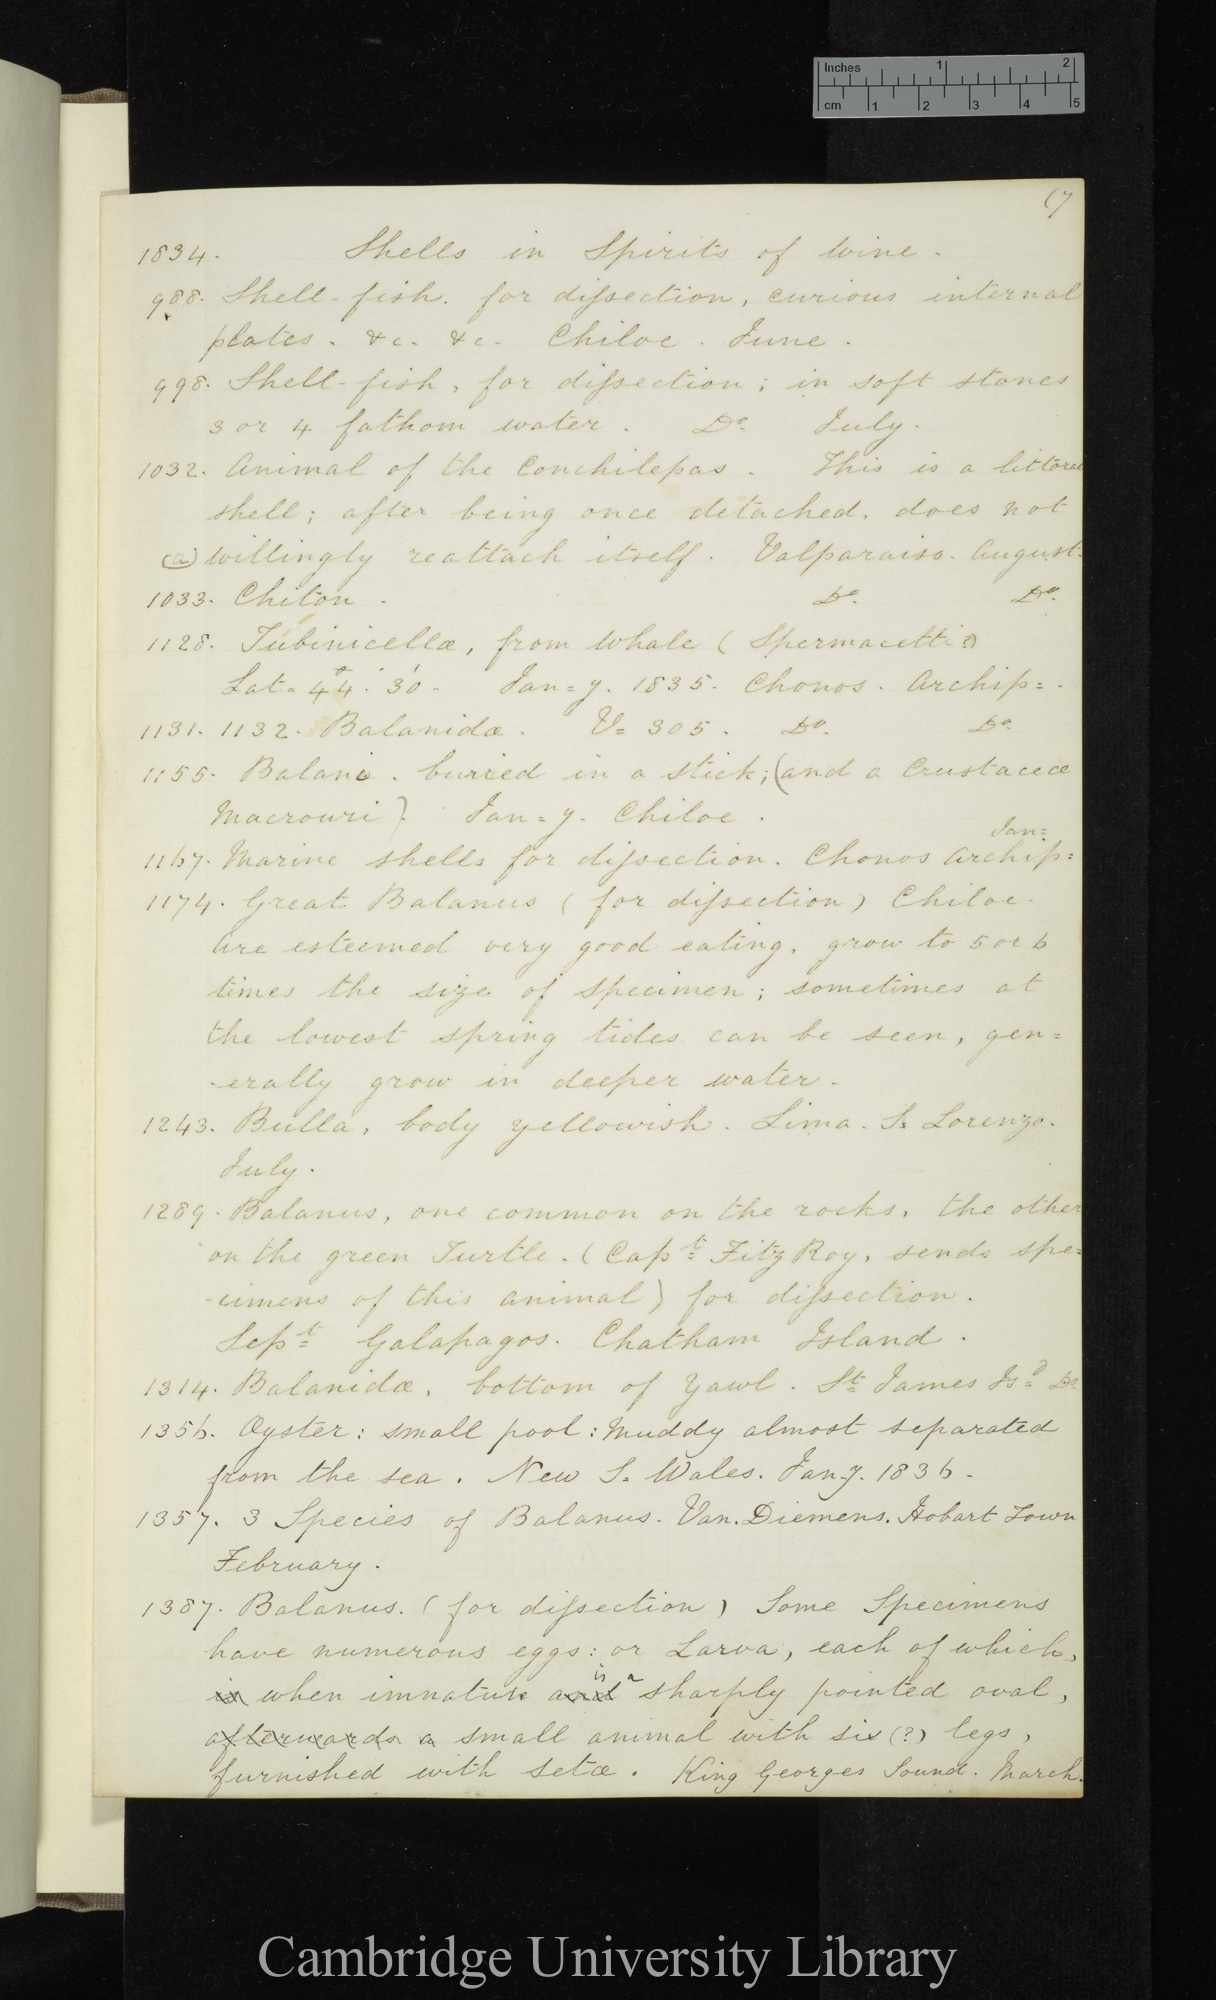 Inches 1 2
cm 1 2 3 4 5
(7
1834. Shells in Spirits of Wine.
988. Shell-fish. for dissection, curious internal
plates. &c. &c. Chiloe. June.
998. Shell-fish, for dissection; in soft stones
3 or 4 fathom water. Do. July.
1032. Animal of the Conchilepas. This is a littoral
shell; after being once detached, does not
(a) willingly reattach itself. Valparaiso. August.
1033. Chiton. Do. Do.
1128. Tubinicellæ, from Whale (Spermacetti?)
Lat= 44° 30'. Jan=y. 1835. Chonos. Archip=.
1131. 1132. Balanidæ. V= 305. Do. Do.
1155. Balani. buried in a stick; (and a Crustaceæ
Macrouri). Jan=y. Chiloe.
Jan=
1167. Marine shells for dissection. Chonos Archip=
1174. Great Balanus (for dissection) Chiloe.
are esteemed very good eating, grow to 5 or 6
times the size of specimen; sometimes at
the lowest spring tides can be seen, gen=
-erally grow in deeper water.
1243. Bulla, body yellowish. Lima. S. Lorenzo.
July.
1289. Balanus, one common on the rocks, the other
on the green Turtle. (Capt= FitzRoy, sends spe=
-cimens of this animal) for dissection.
Sept= Galapagos. Chatham Island.
1314. Balanidæ, bottom of Yawl. St= James Isd= Do.
1356. Oyster: small pool: Muddy almost separated
from the sea. New S. Wales. Jan-y. 1836.
1357. 3 Species of Balanus. Van. Diemens. Hobart Town
February.
1387. Balanus. (for dissection) Some Specimens
have numerous eggs: or Larva, each of which,
is a
in when immature and sharply pointed oval,
afterwards a small animal with six (?) legs,
furnished with setæ. King Georges Sound. March.
Cambridge University Library